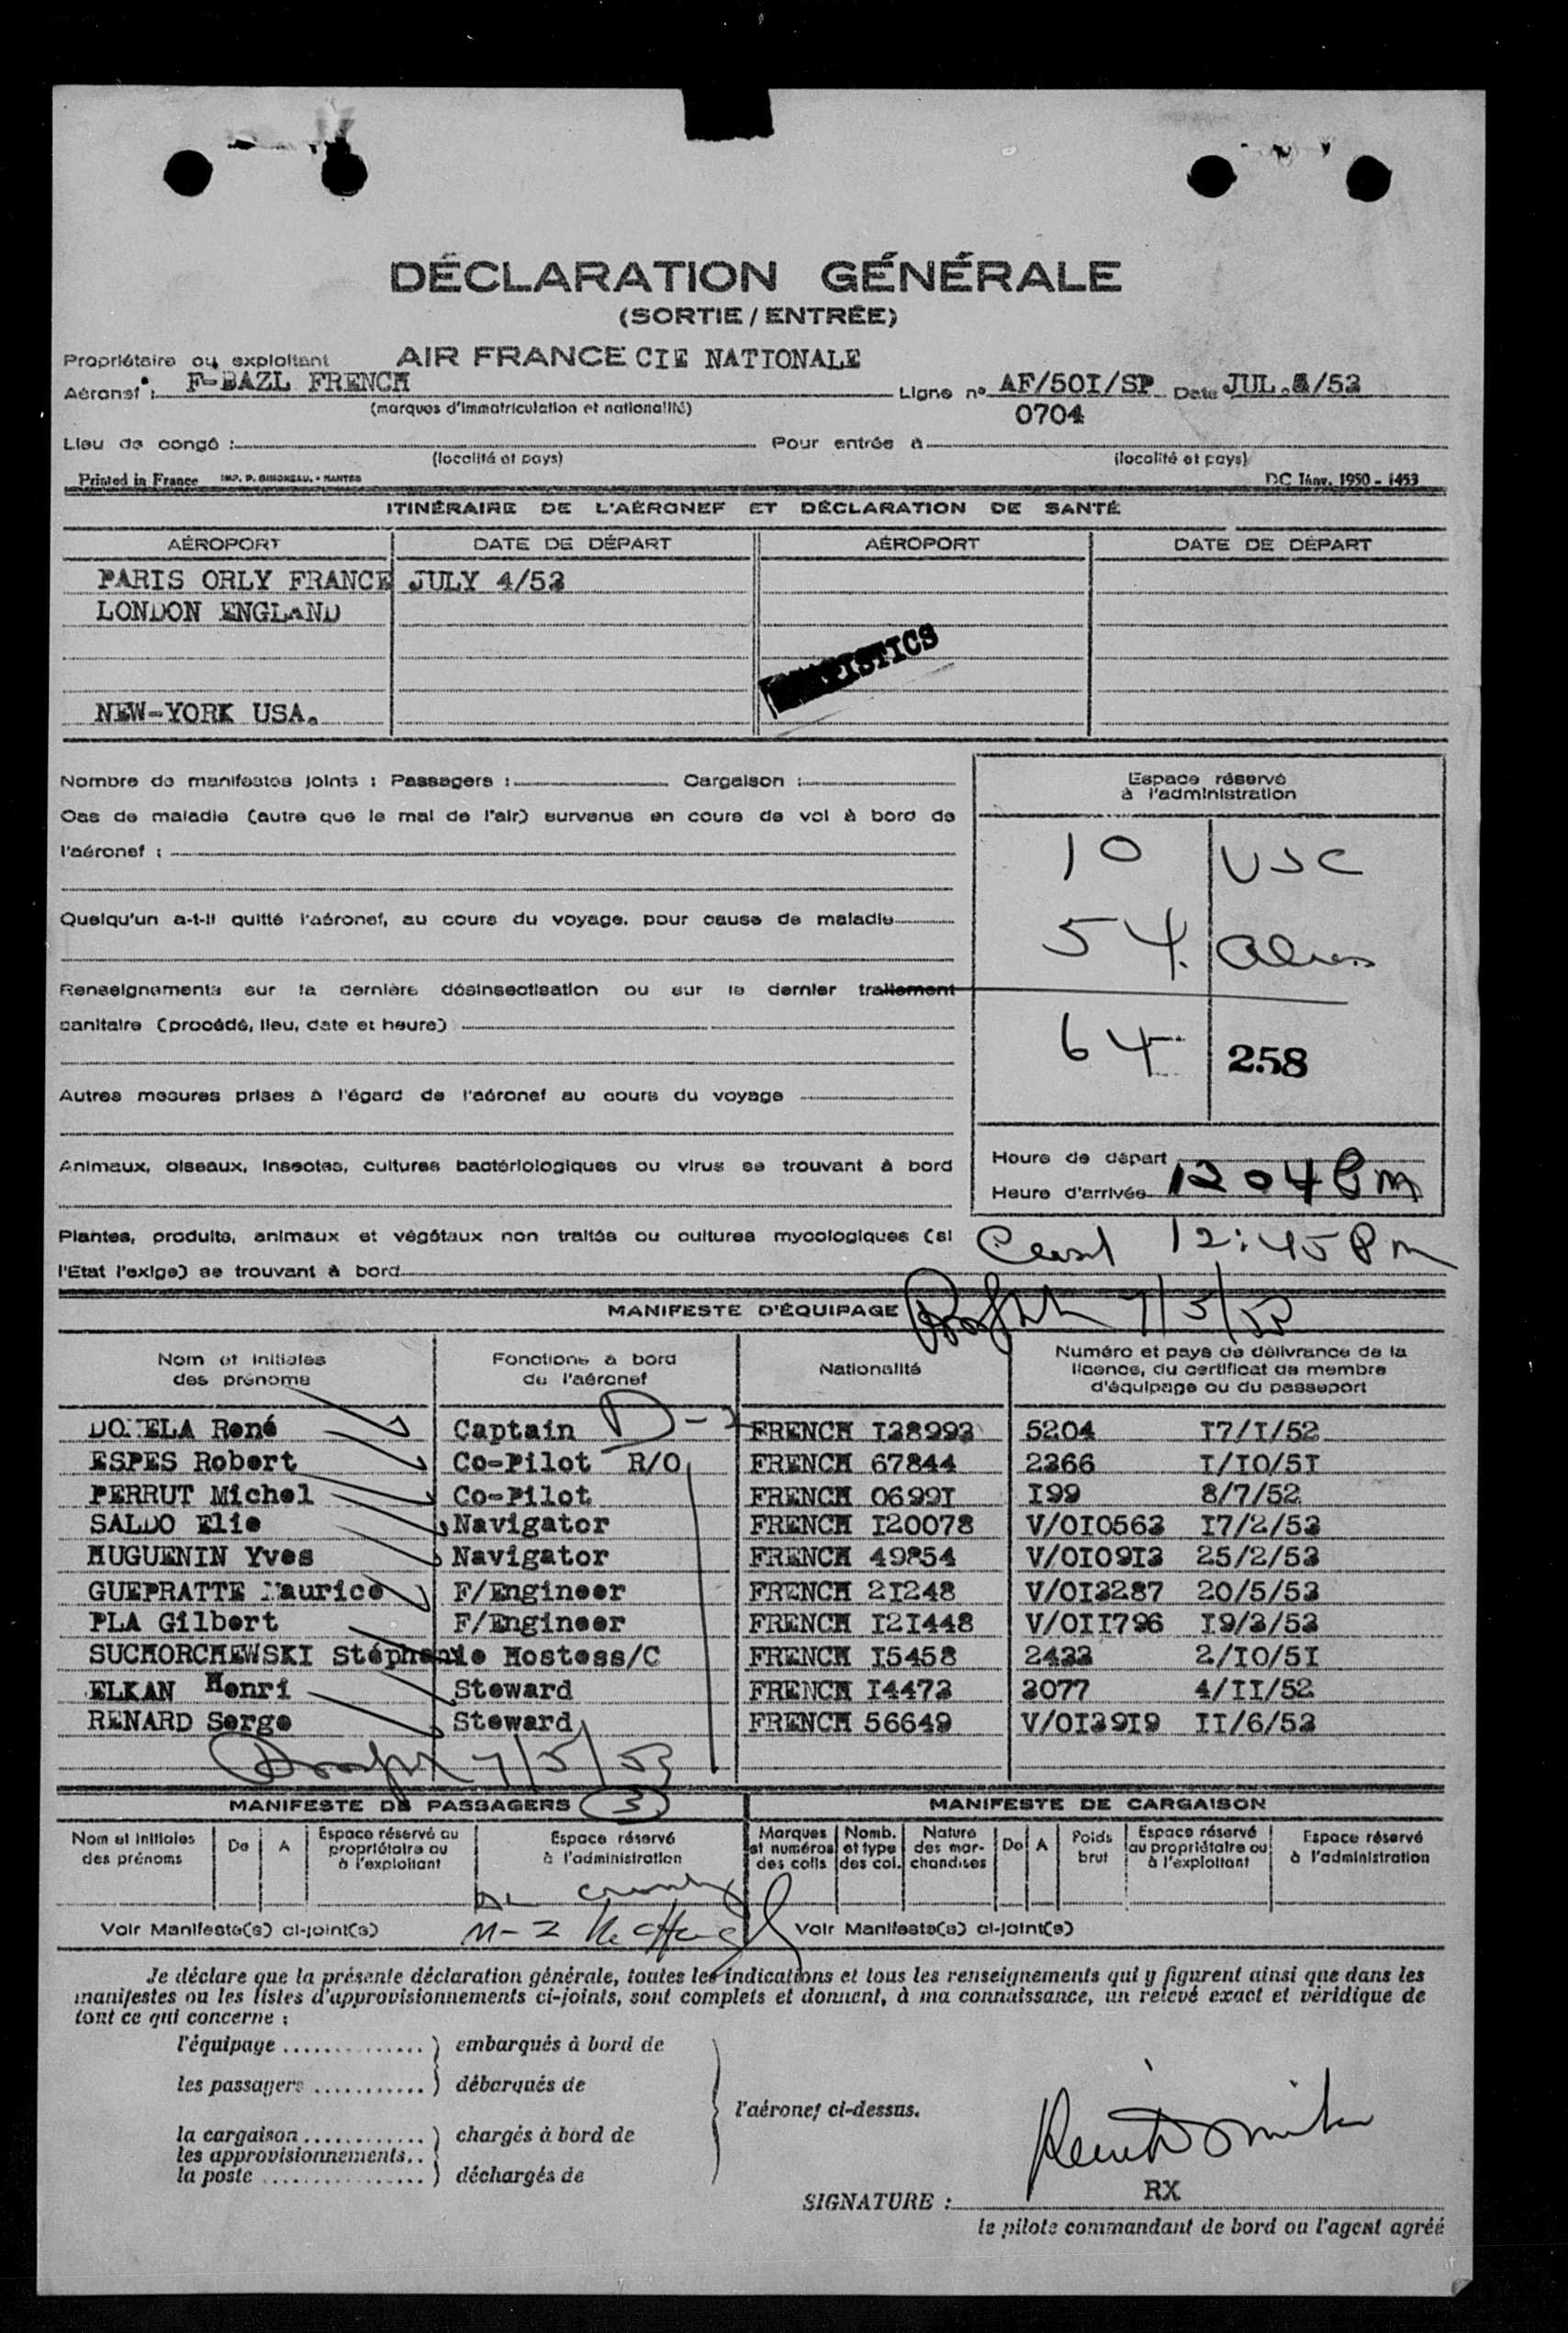 DÉCLARATION GÉNÉRALE
(SORTIE / ENTRÉE)
Propriétaire ou exploitant AIR FRANCE CIE NATIONALE
Aéronef : F-BAZL FRENCH Ligne nº AF/50I/SP Date JUL.5/53
(marques d'immatriculation et nationalité) 0704
Lieu de congé : Pour entrée à
(localité et pays) (localité et pays)
Printed in France IMP. P. GINONEAU. - NANTES DC Janv. 1950 - 1453
ITINÉRAIRE DE L'AÉRONEF ET DÉCLARATION DE SANTÉ
AÉROPORT DATE DE DÉPART AÉROPORT DATE DE DÉPART
PARIS ORLY FRANCE JULY 4/53
LONDON ENGLAND
NEW-YORK USA.
Nombre de manifestes joints : Passagers : Cargaison :
Cas de maladie (autre que le mal de l'air) survenus en cours de vol à bord de
l'aéronef :
Quelqu'un a-t-il quitté l'aéronef, au cours du voyage, pour cause de maladie
Renseignements sur la dernière désinsectisation ou sur le dernier traitement
sanitaire (procédé, lieu, date et heure)
Autres mesures prises à l'égard de l'aéronef au cours du voyage
Animaux, oiseaux, insectes, cultures bactériologiques ou virus se trouvant à bord
Plantes, produits, animaux et végétaux non traités ou cultures mycologiques (si
l'Etat l'exige) se trouvant à bord
Espace réservé
à l'administration
10 USC
54 aliens
64 258
Heure de départ
Heure d'arrivée 12 04 Pm
12:45 Pm
7/5/53
MANIFESTE D'ÉQUIPAGE
Nom et initiales des prénoms Fonctions à bord de l'aéronef Nationalité Numéro et pays de délivrance de la licence, du certificat de membre d'équipage ou du passeport
René Captain FRENCH I28993 5204 I7/I/52
ESPES Robert Co-Pilot R/O FRENCH 67844 2366 I/IO/5I
PERRUT Michel Co-Pilot FRENCH 0699I I99 8/7/52
SALDO Elie Navigator FRENCH I20078 V/OI0563 I7/2/53
HUGUENIN Yves Navigator FRENCH 49854 V/OI09I3 25/2/53
GUEPRATTE Maurice F/Engineer FRENCH 2I248 V/OI3287 20/5/53
PLA Gilbert F/Engineer FRENCH I2I448 V/OII796 I9/3/53
SUCHORCHEWSKI Stéphanie Hostess/C FRENCH I5458 2433 2/IO/5I
ELKAN Henri Steward FRENCH I4473 3077 4/II/52
RENARD Serge Steward FRENCH 56649 V/OI3919 II/6/53
7/5/53
MANIFESTE DE PASSAGERS MANIFESTE DE CARGAISON
Nom et initiales des prénoms De A Espace réservé au propriétaire ou à l'exploitant Espace réservé à l'administration Marques et numéros des colis Nomb. et type des col. Nature des marchandises De A Poids brut Espace réservé au propriétaire ou à l'exploitant Espace réservé à l'administration
Voir Manifeste(s) ci-joint(s) Voir Manifeste(s) ci-joint(s)
Je déclare que la présente déclaration générale, toutes les indications et tous les renseignements qui y figurent ainsi que dans les
manifestes ou les listes d'approvisionnements ci-joints, sont complets et donnent, à ma connaissance, un relevé exact et véridique de
tout ce qui concerne :
l'équipage .............. ) embarqués à bord de
les passagers ........... ) débarqués de
l'aéronef ci-dessus.
la cargaison ............ ) chargés à bord de
les approvisionnements..
la poste ................ ) déchargés de
RX
SIGNATURE :
le pilote commandant de bord ou l'agent agréé